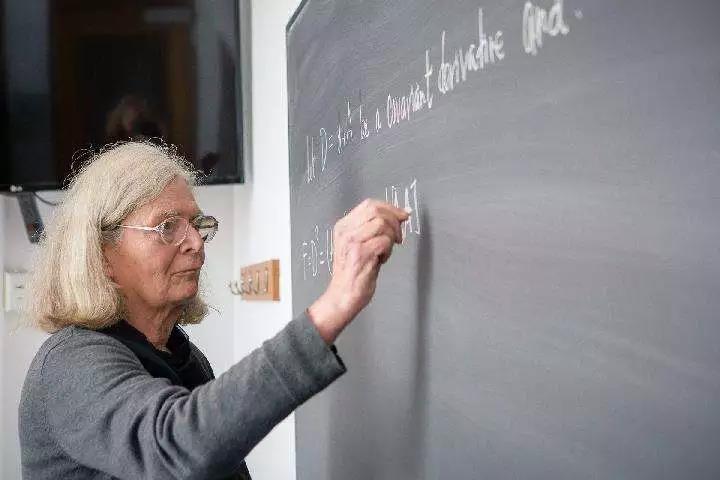 let D = d+A be a covariant derivative and.
F = D² =